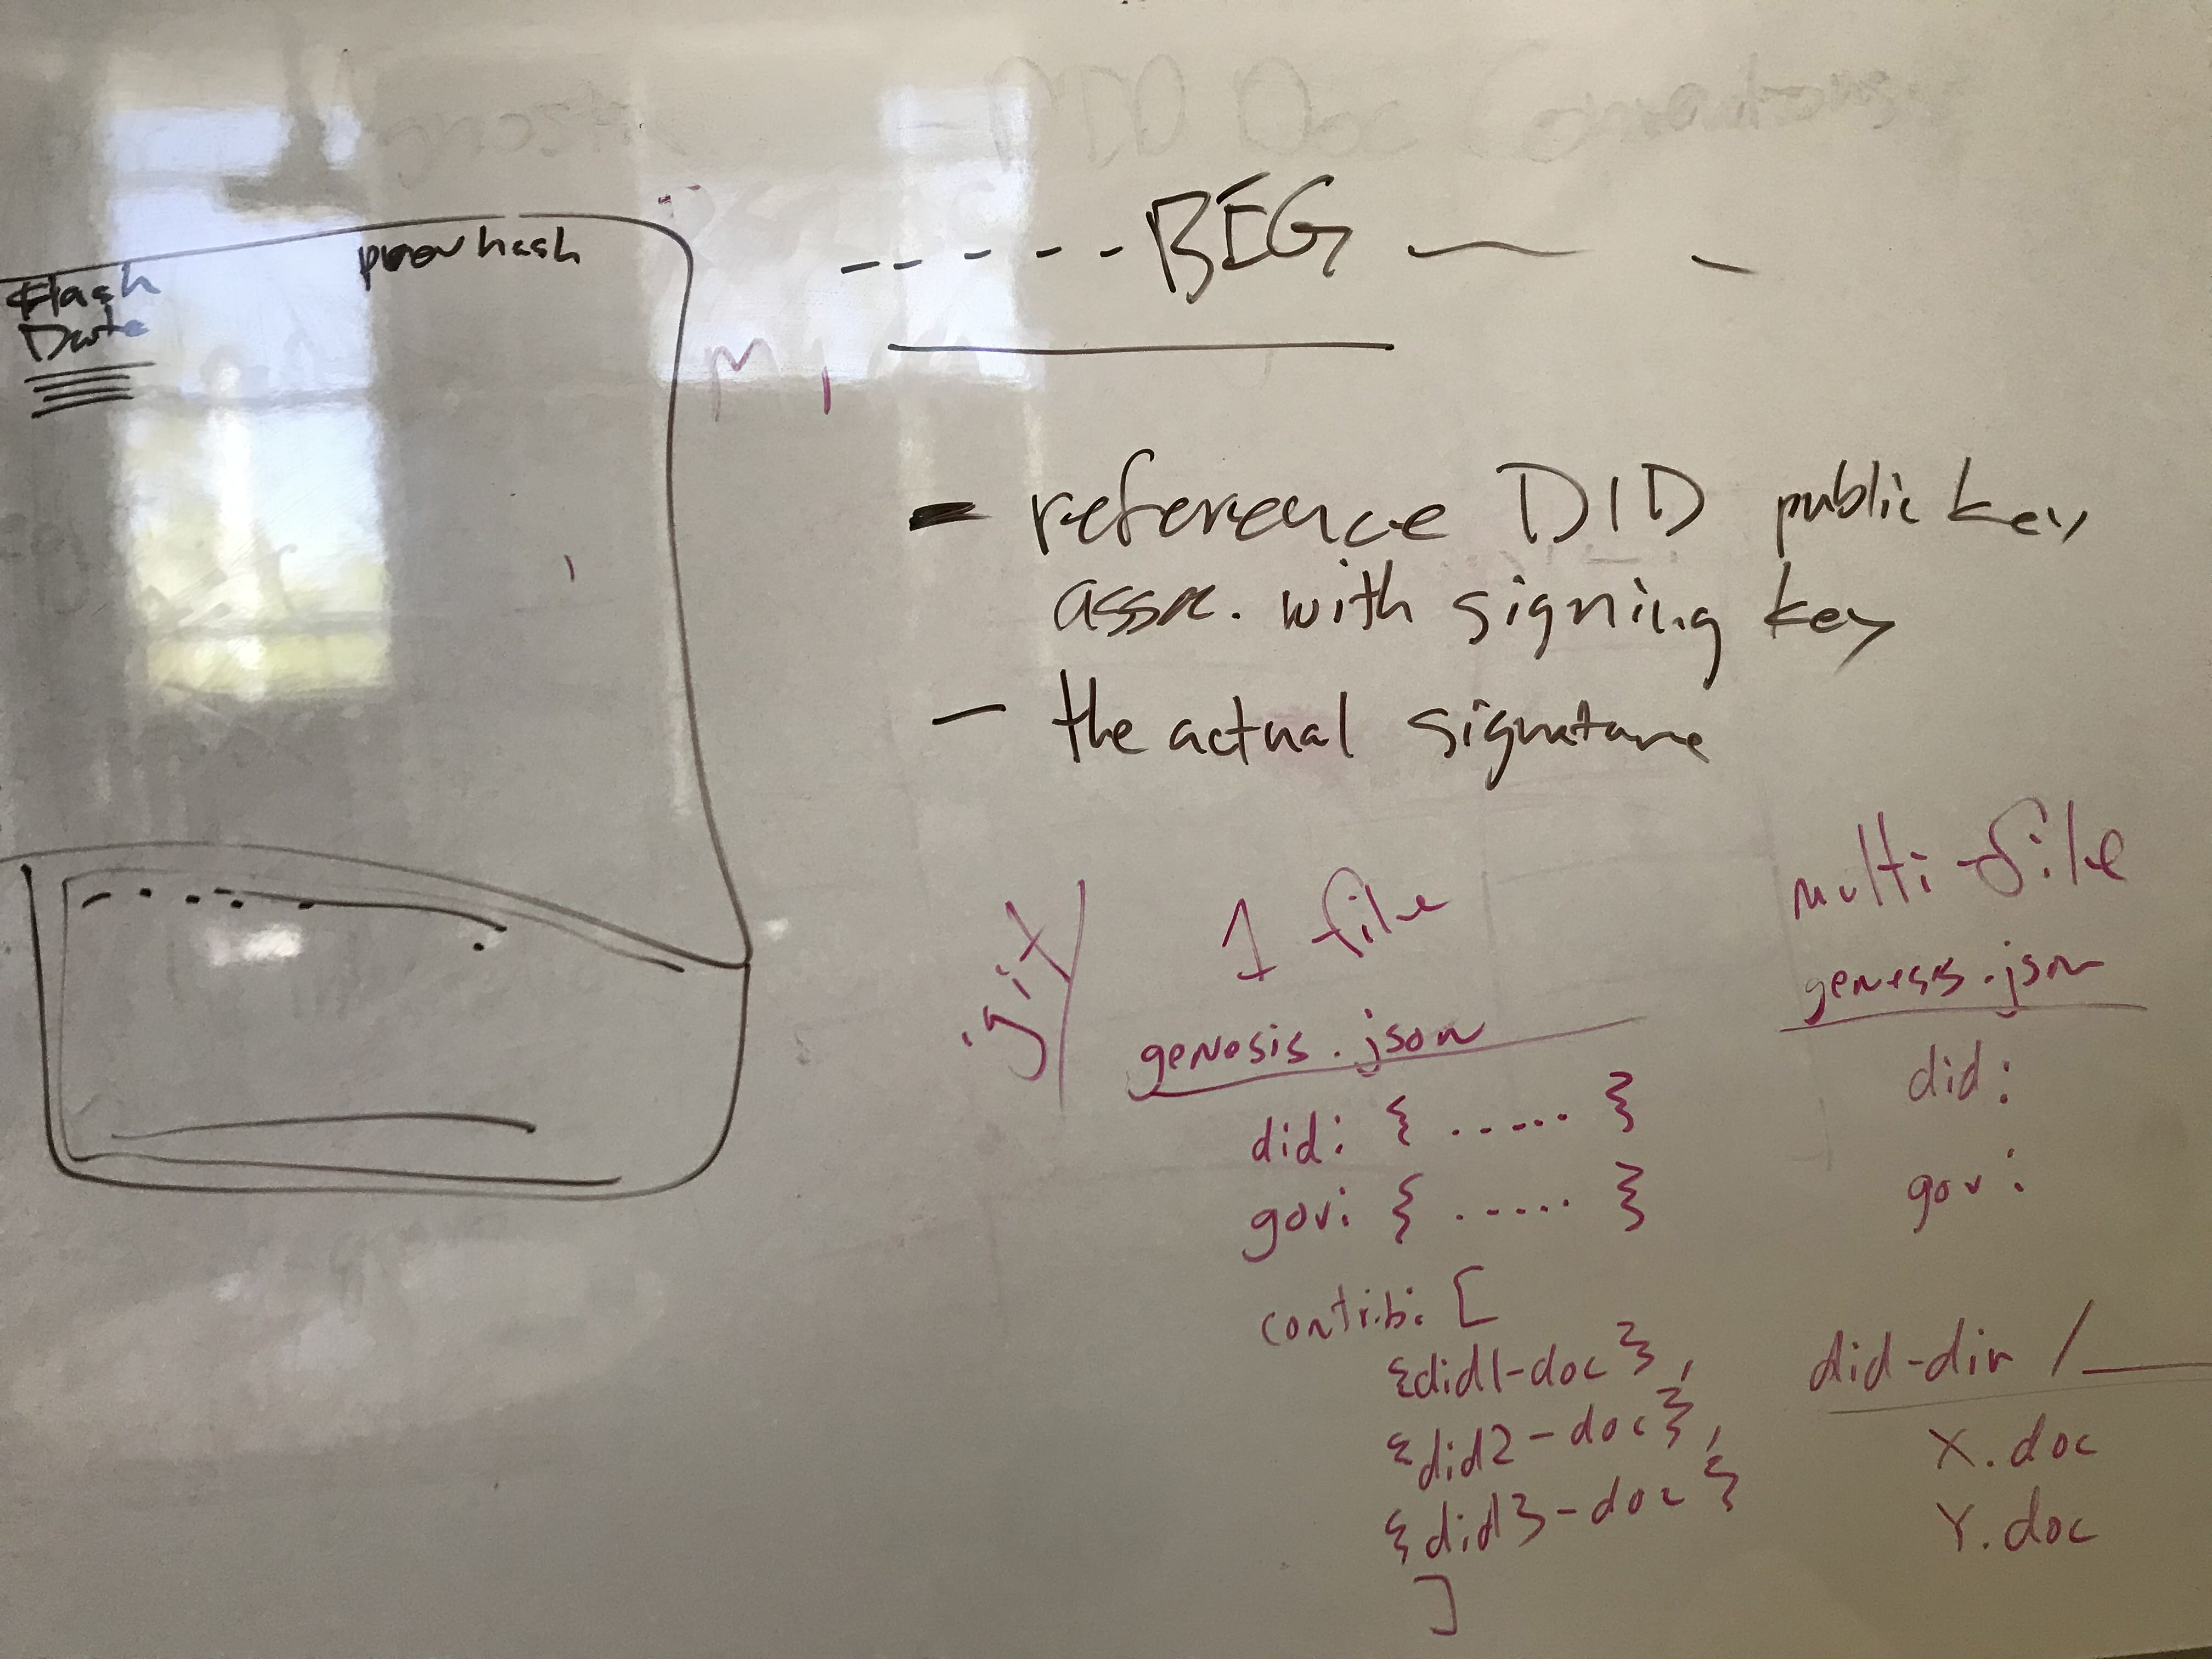 prev hash
Hash
Date
-----BEG — -
- reference DID public key
assoc. with signing key
- the actual signature
.git/
1 file
genesis.json
did: { ...... }
gov: { ...... }
contrib: [
{did1-doc},
{did2-doc},
{did3-doc}
]
multi-file
genesis.json
did:
gov:
did-dir /
X.doc
Y.doc